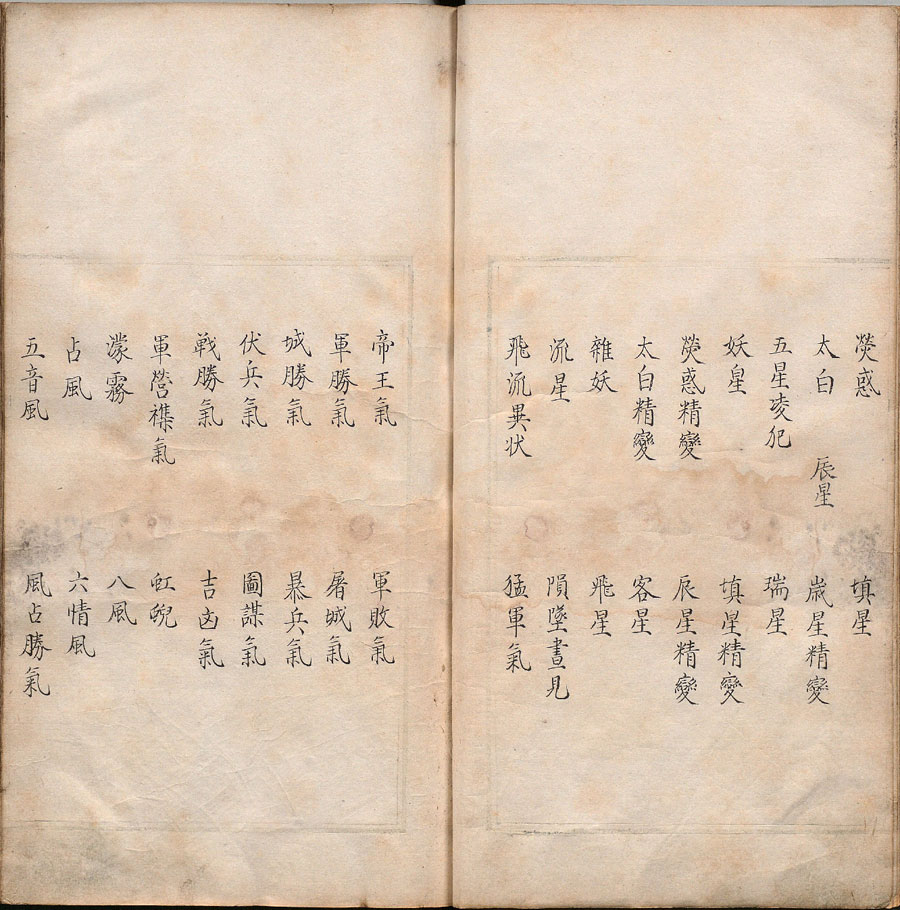 熒惑 填星
太白 辰星 嵗星精變
五星凌犯 瑞星
妖星 填星精變
熒惑精變 辰星精變
太白精變 客星
雜妖 飛星
流星 隕墜晝見
飛流異状 猛軍氣
帝王氣 軍敗氣
軍勝氣 屠城氣
城勝氣 暴兵氣
伏兵氣 圖謀氣
戦勝氣 吉凶氣
軍營襍氣 虹蜺
濛霧 八風
占風 六情風
五音風 風占勝氣